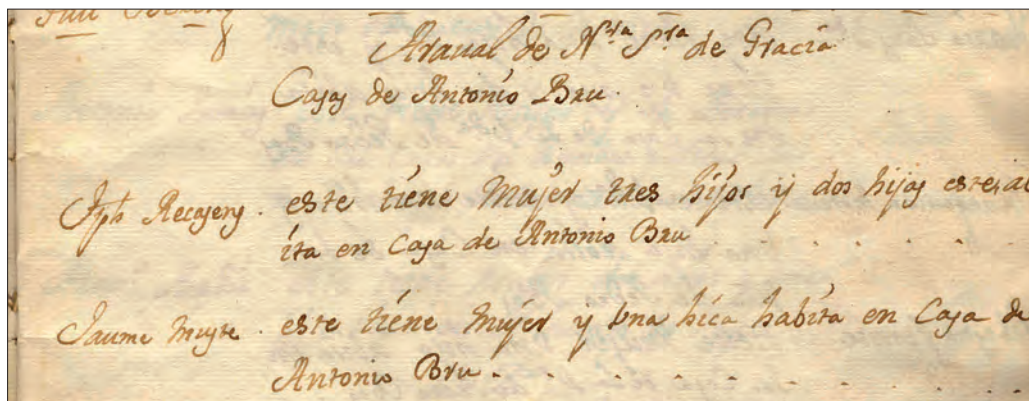 Araual de Nra Sra de Gracia
Casas de Antonio Bru.
Jph Recasens. este tiene Mujer tres hijos y dos hijas este
ita en Casa de Antonio Bru . . . . . . .
Jaume . este tiene Mujer y Una hica habita en Casa de
Antonio Bru . . . . . . . . . .